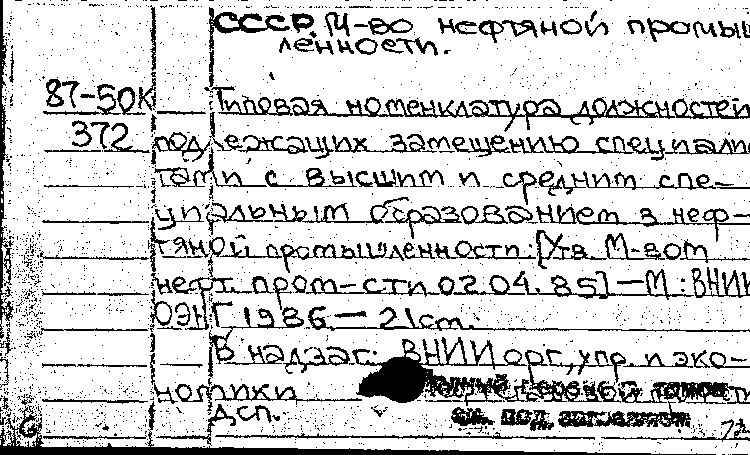 СССР. М-во нефтяной промыш
ленности.
87-50К Типовая номенклатура должностей
372 подлежащих замещению специалис
тами с высшим и средним спе-
циальным образованием в неф-
тяной промышленности: [Утв. М-вом
нефт. пром-сти 02.04.85] – М : ВНИИ
ОЭНГ 1986. – 21 см.
В надзаг: ВНИИ орг., упр. и эко-
номики
ДСП. см. под заглавием